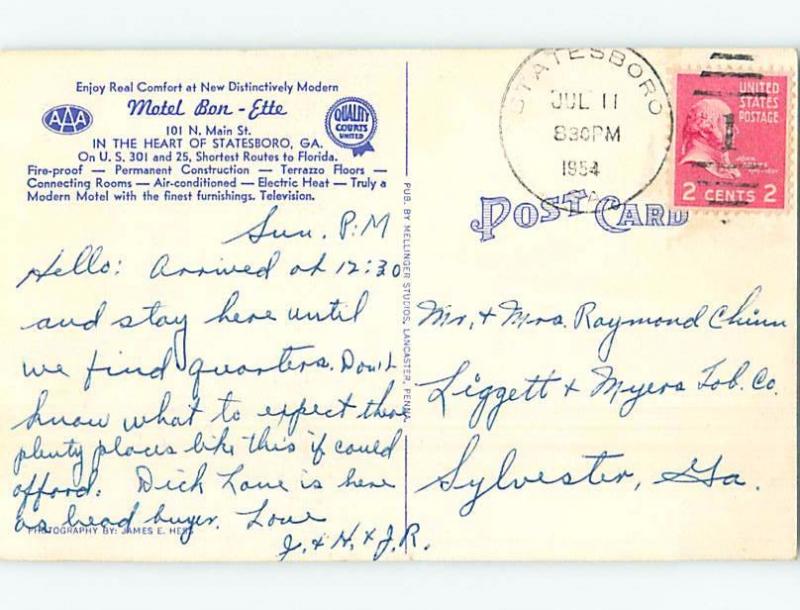 Enjoy Real Comfort at New Distinctively Modern
Motel Bon-Ette
AAA
QUALITY
COURTS
UNITED
101 N. Main St.
IN THE HEART OF STATESBORO, GA.
On U. S. 301 and 25, Shortest Routes to Florida.
Fire-proof — Permanent Construction — Terrazzo Floors —
Connecting Rooms — Air-conditioned — Electric Heat — Truly a
Modern Motel with the finest furnishings. Television.
Sun. P.M
Hello: Arrived at 12:30
and stay here until
we find quarters. Don't
know what to expect there
plenty places like this if could
afford. Dick Lane is here
as head buyer. Love
J. + H. + J.R.
PHOTOGRAPHY BY: JAMES E. HESS
PUB. BY MELLINGER STUDIOS, LANCASTER, PENNA.
STATESBORO
JUL 11
830PM
1954
GA.
UNITED
STATES
POSTAGE
JOHN
2 CENTS 2
POST CARD
Mr. + Mrs. Raymond Chinn
Liggett + Myers Tob. Co.
Sylvester, Ga.